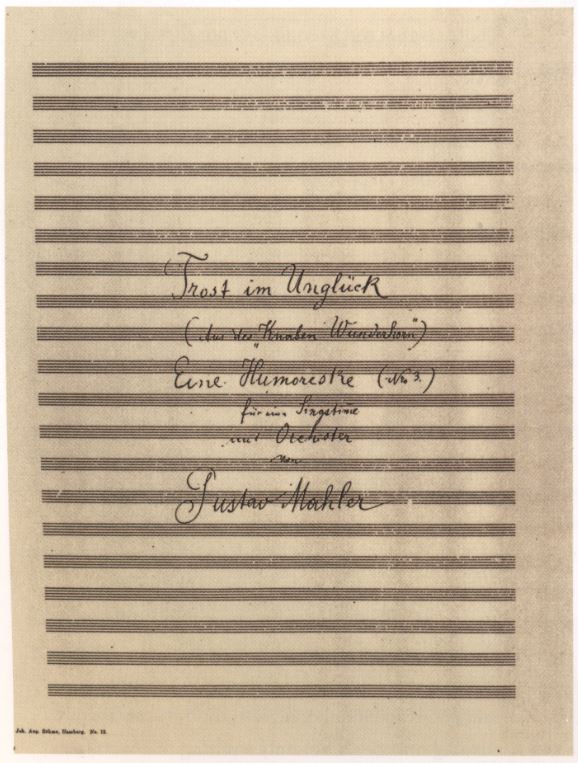 Trost im Unglück
(Aus des "Knaben Wunderhorn")
Eine Humoreske (Nro 3.)
für eine Singstimme
und Orchester
von
Gustav Mahler
Joh. Aug. Böhme, Hamburg. No. 12.